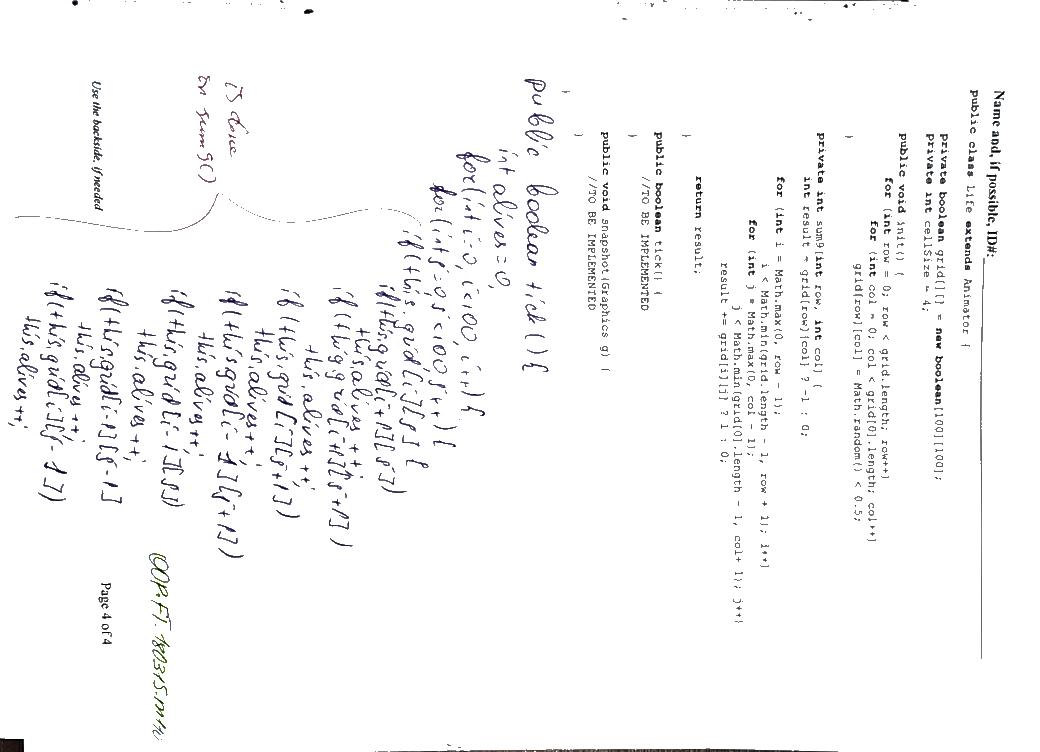 Name and, if possible, ID#:
public class Life extends Animator {
private boolean grid[][] = new boolean[100][100];
private int cellSize = 4;
public void init() {
for (int row = 0; row < grid.length; row++)
for (int col = 0; col < grid[0].length; col++)
grid[row][col] = Math.random() < 0.5;
}
private int sum9(int row, int col) {
int result = grid[row][col] ? -1 : 0;
for (int i = Math.max(0, row - 1);
i < Math.min(grid.length - 1, row + 1); i++)
for (int j = Math.max(0, col - 1);
j < Math.min(grid[0].length - 1, col+ 1); j++)
result += grid[i][j] ? 1 : 0;
return result;
}
public boolean tick() {
//TO BE IMPLEMENTED
}
public void snapshot(Graphics g) {
//TO BE IMPLEMENTED
}
}
public boolean tick(){
int alives=0,
for(int i=0, i<100, i++){
for(int j=0,j<100,j++){
if(this.grid[i][j]{
if(this.grid[i+1][j])
this.alives ++;
if(this.grid[i+1][j+1])
this.alives ++;
if(this.grid[i][j+1])
this.alives++;
if(this.grid[i-1][j+1])
this.alives++;
if(this.grid[i-1][j])
this.alives ++;
if(this.grid[i-1][j-1]
this.alives ++;
if(this.grid[i][j-1])
this.alives++;
is done
in sum9()
OOP.FT.180315.
Use the backside, if needed
Page 4 of 4